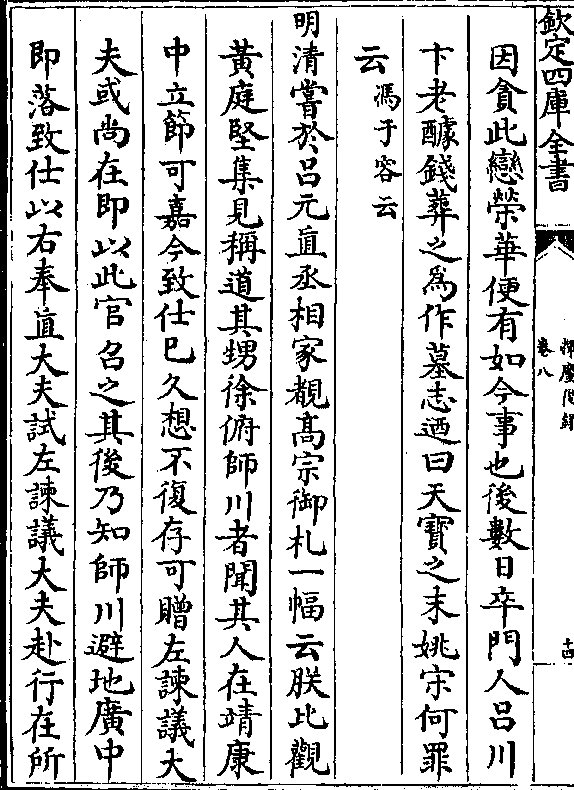 欽定四庫全書
揮麈後録
卷八
十四
因貪此戀榮華便有如今事也後數日卒門人吕川
卞老醵錢葬之為作墓志迺曰天寳之末姚宋何罪
云馮于容云
明清嘗於吕元直丞相家覩髙宗御札一幅云朕比觀
黃庭堅集見稱道其甥徐俯師川者聞其人在靖康
中立節可嘉今致仕已久想不復存可贈左諫議大
夫或尚在即以此官召之其後乃知師川避地廣中
即落致仕以右奉直大夫試左諫議大夫赴行在所